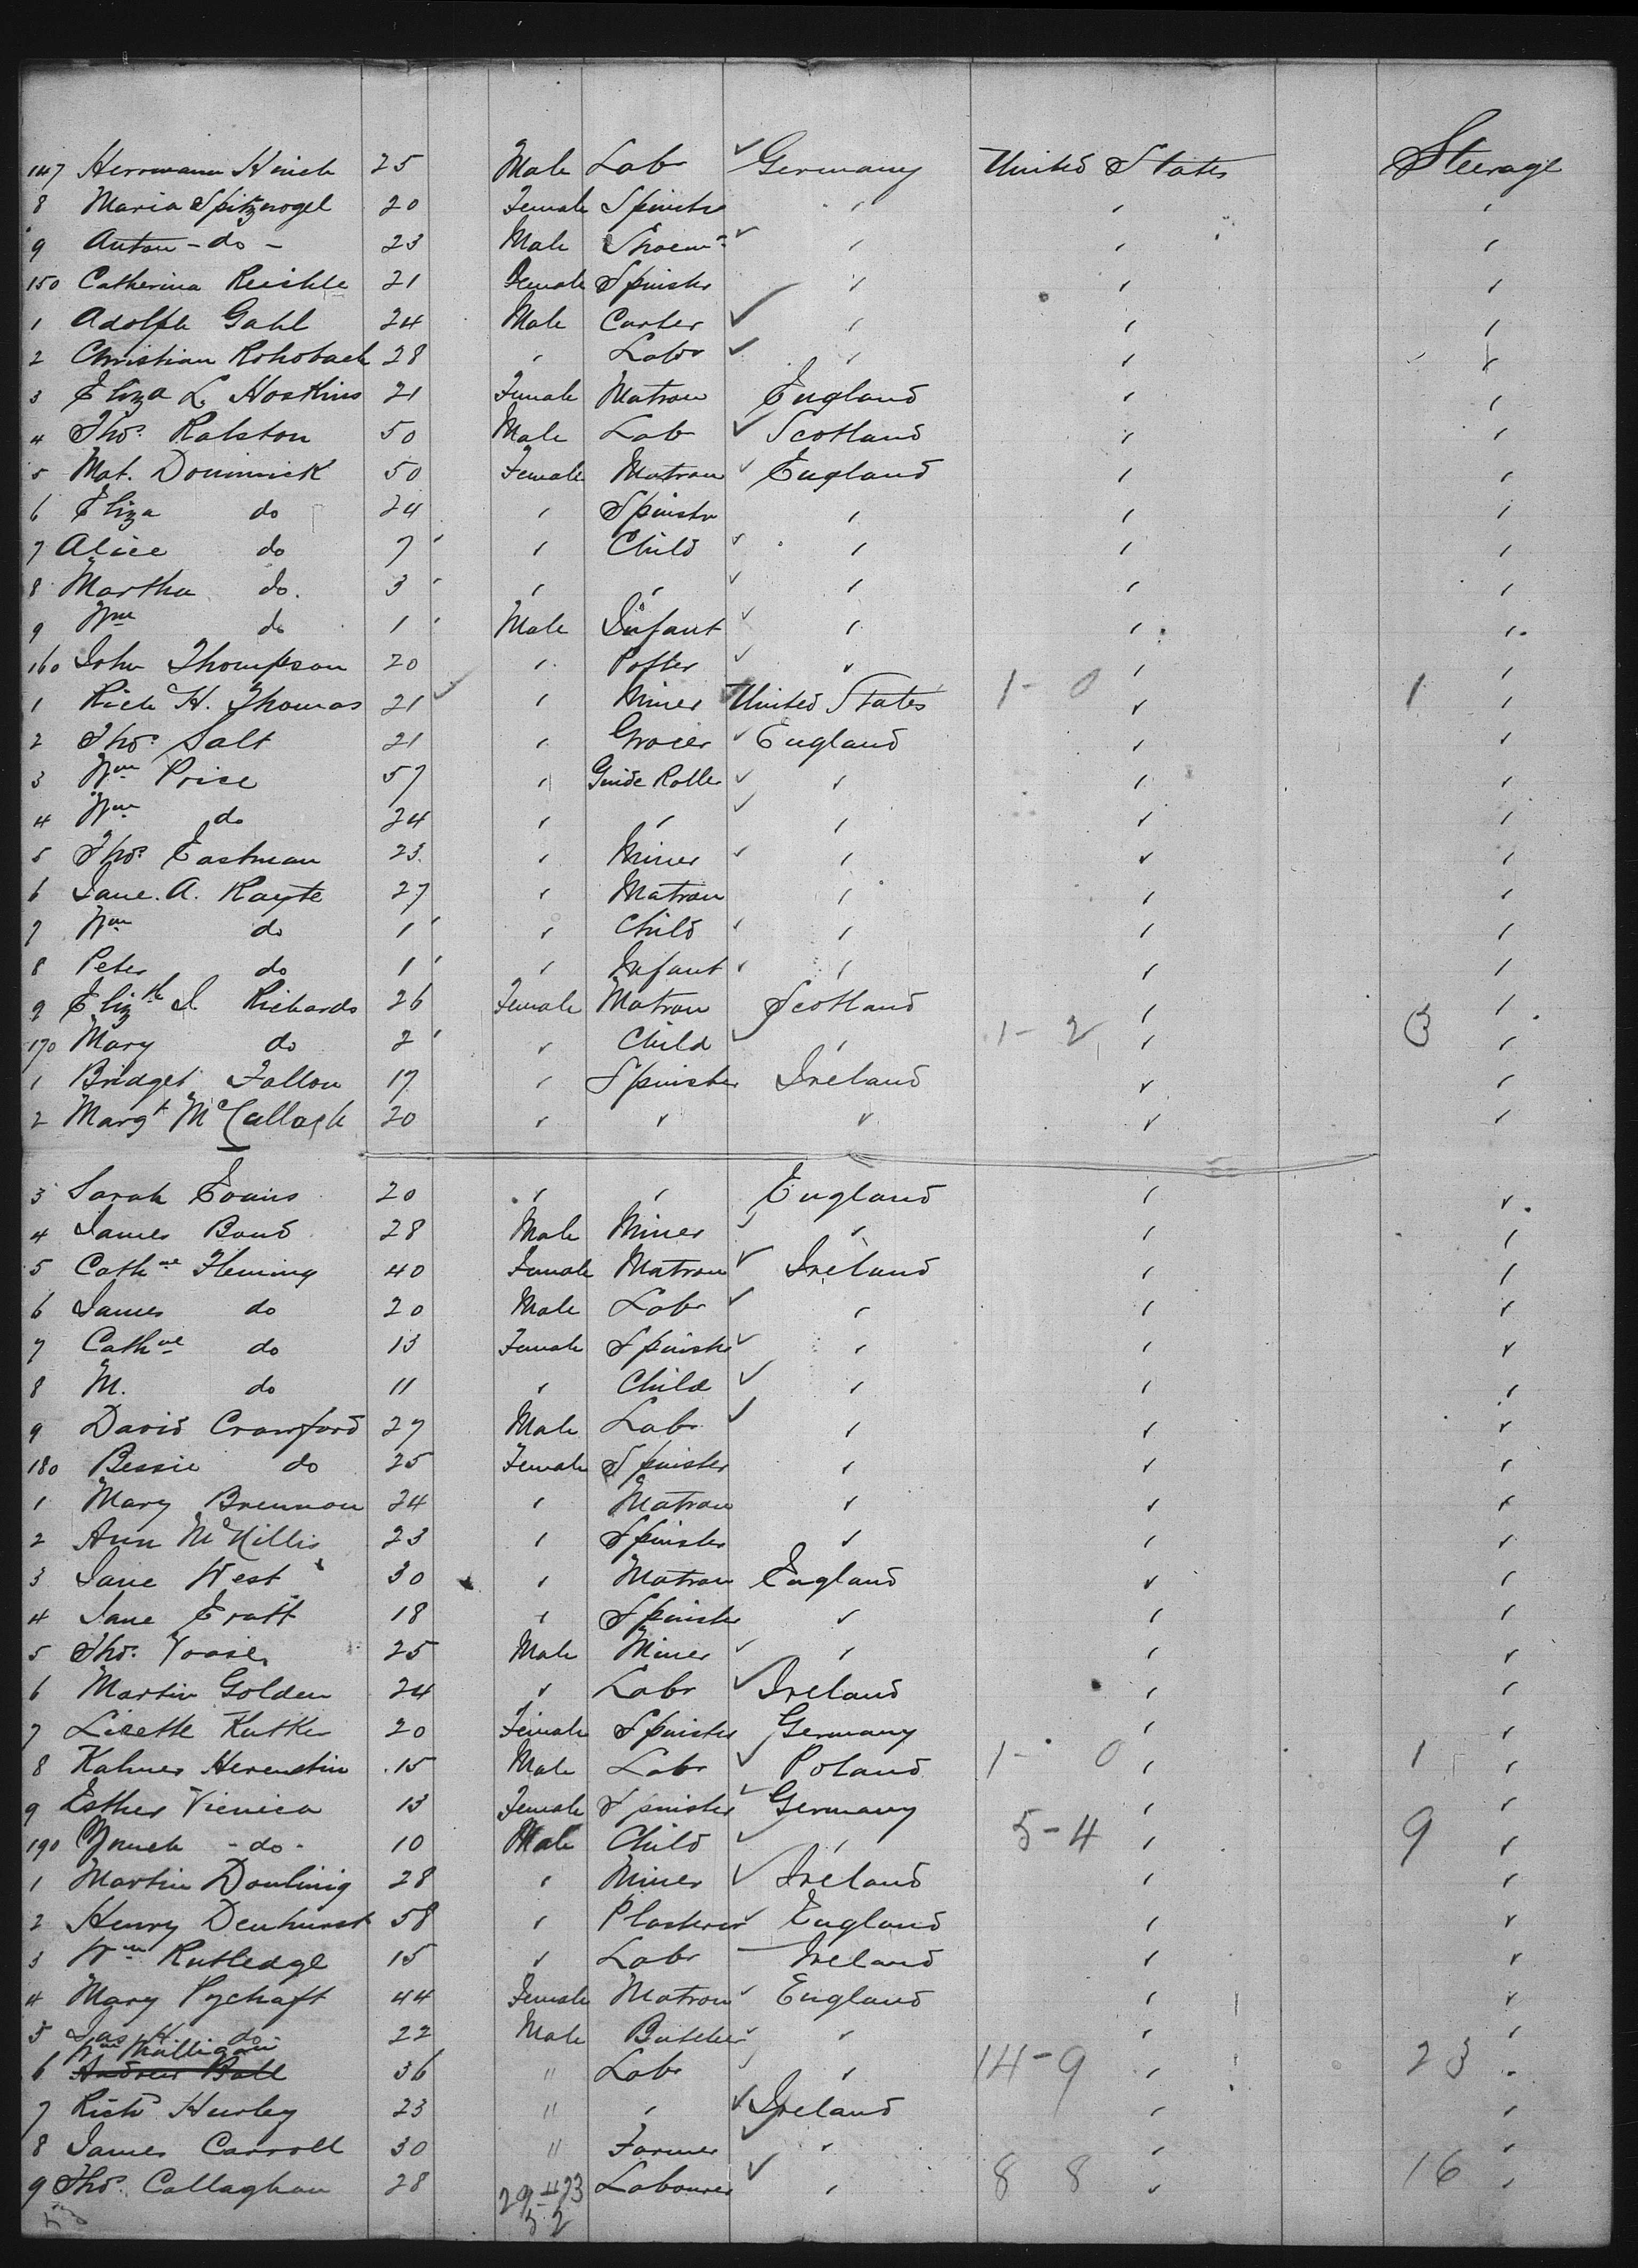 147 Herrmann Hirich 25 Male Labr Germany United States Steerage
8 Maria Spitznogel 20 Female Spinster " " "
9 Anton - do - 23 Male Shoem " " "
150 Catherina Reichle 21 Female Spinster " " "
1 Adolph Gahl 24 Male Carter " " "
2 Christian Rohobach 28 " Labr " " "
3 Eliza L. Hoskins 21 Female Matron England " "
4 Thos. Ralston 50 Male Lab Scotland " "
5 Mat. Dominick 50 Female Matron England " "
6 Eliza do 24 " Spinstr " " "
7 Alice do 7 " Child " " "
8 Martha do. 3 " " " " "
9 Wm do 1 Male Infant " " "
160 John Thompson 20 " Potter " " "
1 Rich H. Thomas 21 " Miner United States 1 - 0 " 1 "
2 Thos. Salt 21 " Grocer England " "
3 Wm Price 57 " Guide Roller " " "
4 Wm do 24 " " " " "
5 Thos. Eastman 23 " Miner " " "
6 Jane. A. Kayte 27 " Matron " " "
7 Wm do 1 " Child " " "
8 Peter do 1 " Infant " " "
9 Elizth J Richards 26 Female Matron Scotland " "
170 Mary do 2 " Child " 1 - 2 " 3 "
1 Bridget Fallon 17 " Spinster Ireland " "
2 Margt McCallagh 20 " " " " "
3 Sarah Evans 20 " " England " "
4 James Bond 28 Male Miner " " "
5 Cathne Fleming 40 Female Matron Ireland " "
6 James do 20 Male Labr " " "
7 Cathne do 13 Female Spinster " " "
8 M. do 11 " Child " " "
9 David Crawford 27 Male Labr " " "
180 Bessie do 25 Female Spinster " " "
1 Mary Brennan 24 " Matron " " "
2 Ann McNillis 23 " Spinster " " "
3 Jane West 30 " Matron England " "
4 Jane Eratt 18 " Spinster " " "
5 Thos. 25 Male Miner " " "
6 Martin Golden 24 " Labr Ireland " "
7 Lizette Kutker 20 Female Spinster Germany " "
8 Kalmer Herenstin 15 Male Labr Poland 1 - 0 " 1 "
9 Esther Vienica 13 Female Spinster Germany " "
190 - do - 10 Male Child " 5 - 4 " 9 "
1 Martin Dowling 28 " Miner Ireland " "
2 Henry Denhurst 58 " Plasterer England " "
3 Wm Rutledge 15 " Labr Ireland " "
4 Mary Pychaft 44 Female Matron England " "
5 Jas H do 22 Male Butcher " " "
Wm Mulligan
6 Andrew Ball 36 " Labr " 14 - 9 " 23 "
7 Richd Hurley 23 " " Ireland " "
8 James Carroll 30 " Farmer " " "
9 Thos. Callaghan 28 Labourer " 8 8 " 16 "
29 - 23
52